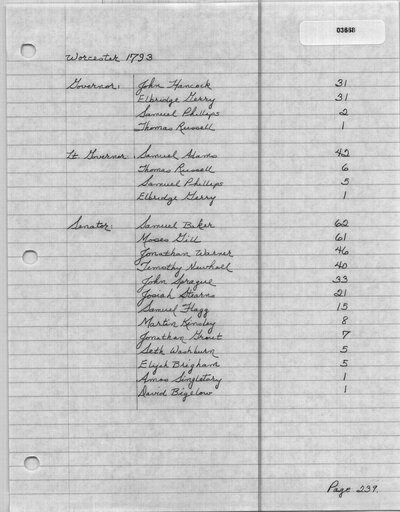 03668
Worcester 1793
Governor: John Hancock 31
Elbridge Gerry 31
Samuel Phillips 2
Thomas Russell 1
Lt. Governor: Samuel Adams 42
Thomas Russell 6
Samuel Phillips 5
Elbridge Gerry 1
Senator: Samuel Baker 62
Moses Gill 61
Jonathan Warner 46
Timothy Newhall 40
John Sprague 33
Josiah Stearns 21
Samuel Flagg 15
Martin Kinsley 8
Jonathan Grout 7
Seth Washburn 5
Elijah Brigham 5
Amos Singletary 1
David Bigelow 1
Page 239.